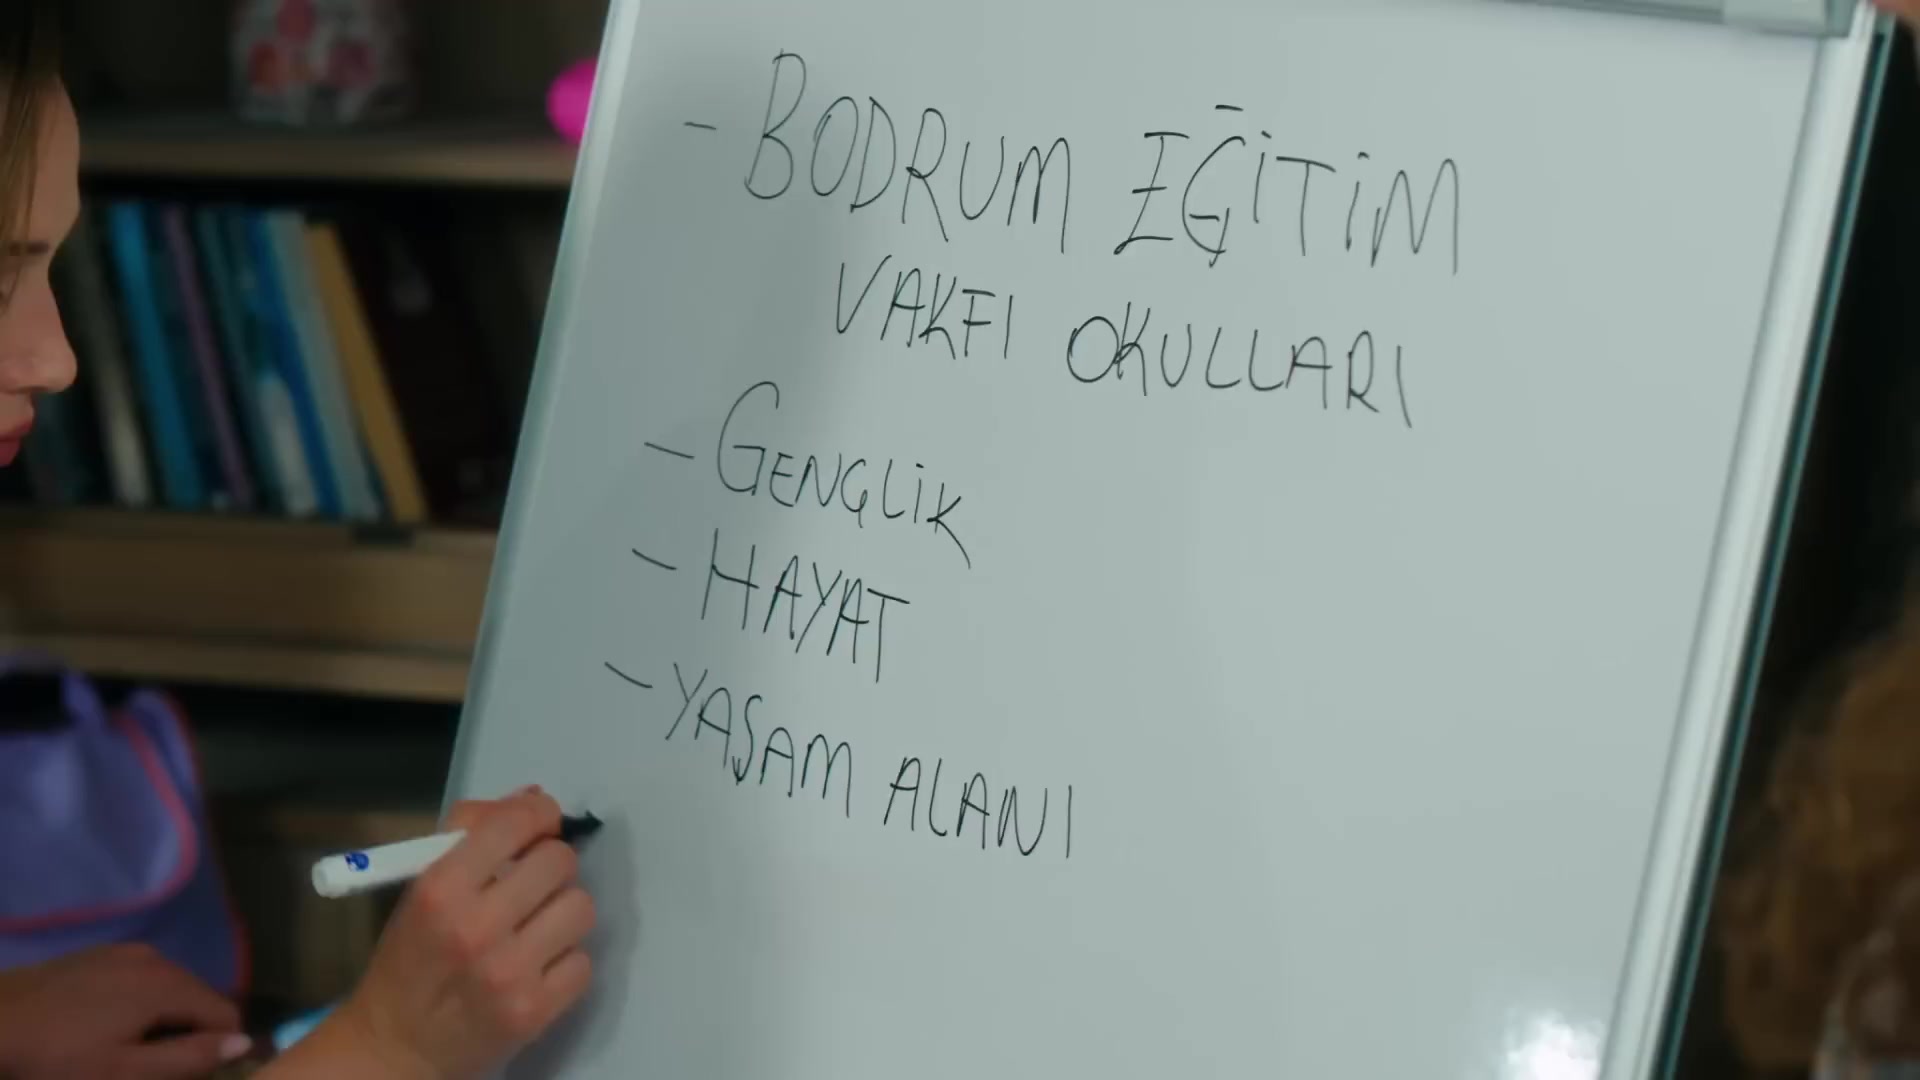 - BODRUM EĞİTİM
VAKFI OKULLARI
- GENÇLİK
- HAYAT
- YAŞAM ALANI